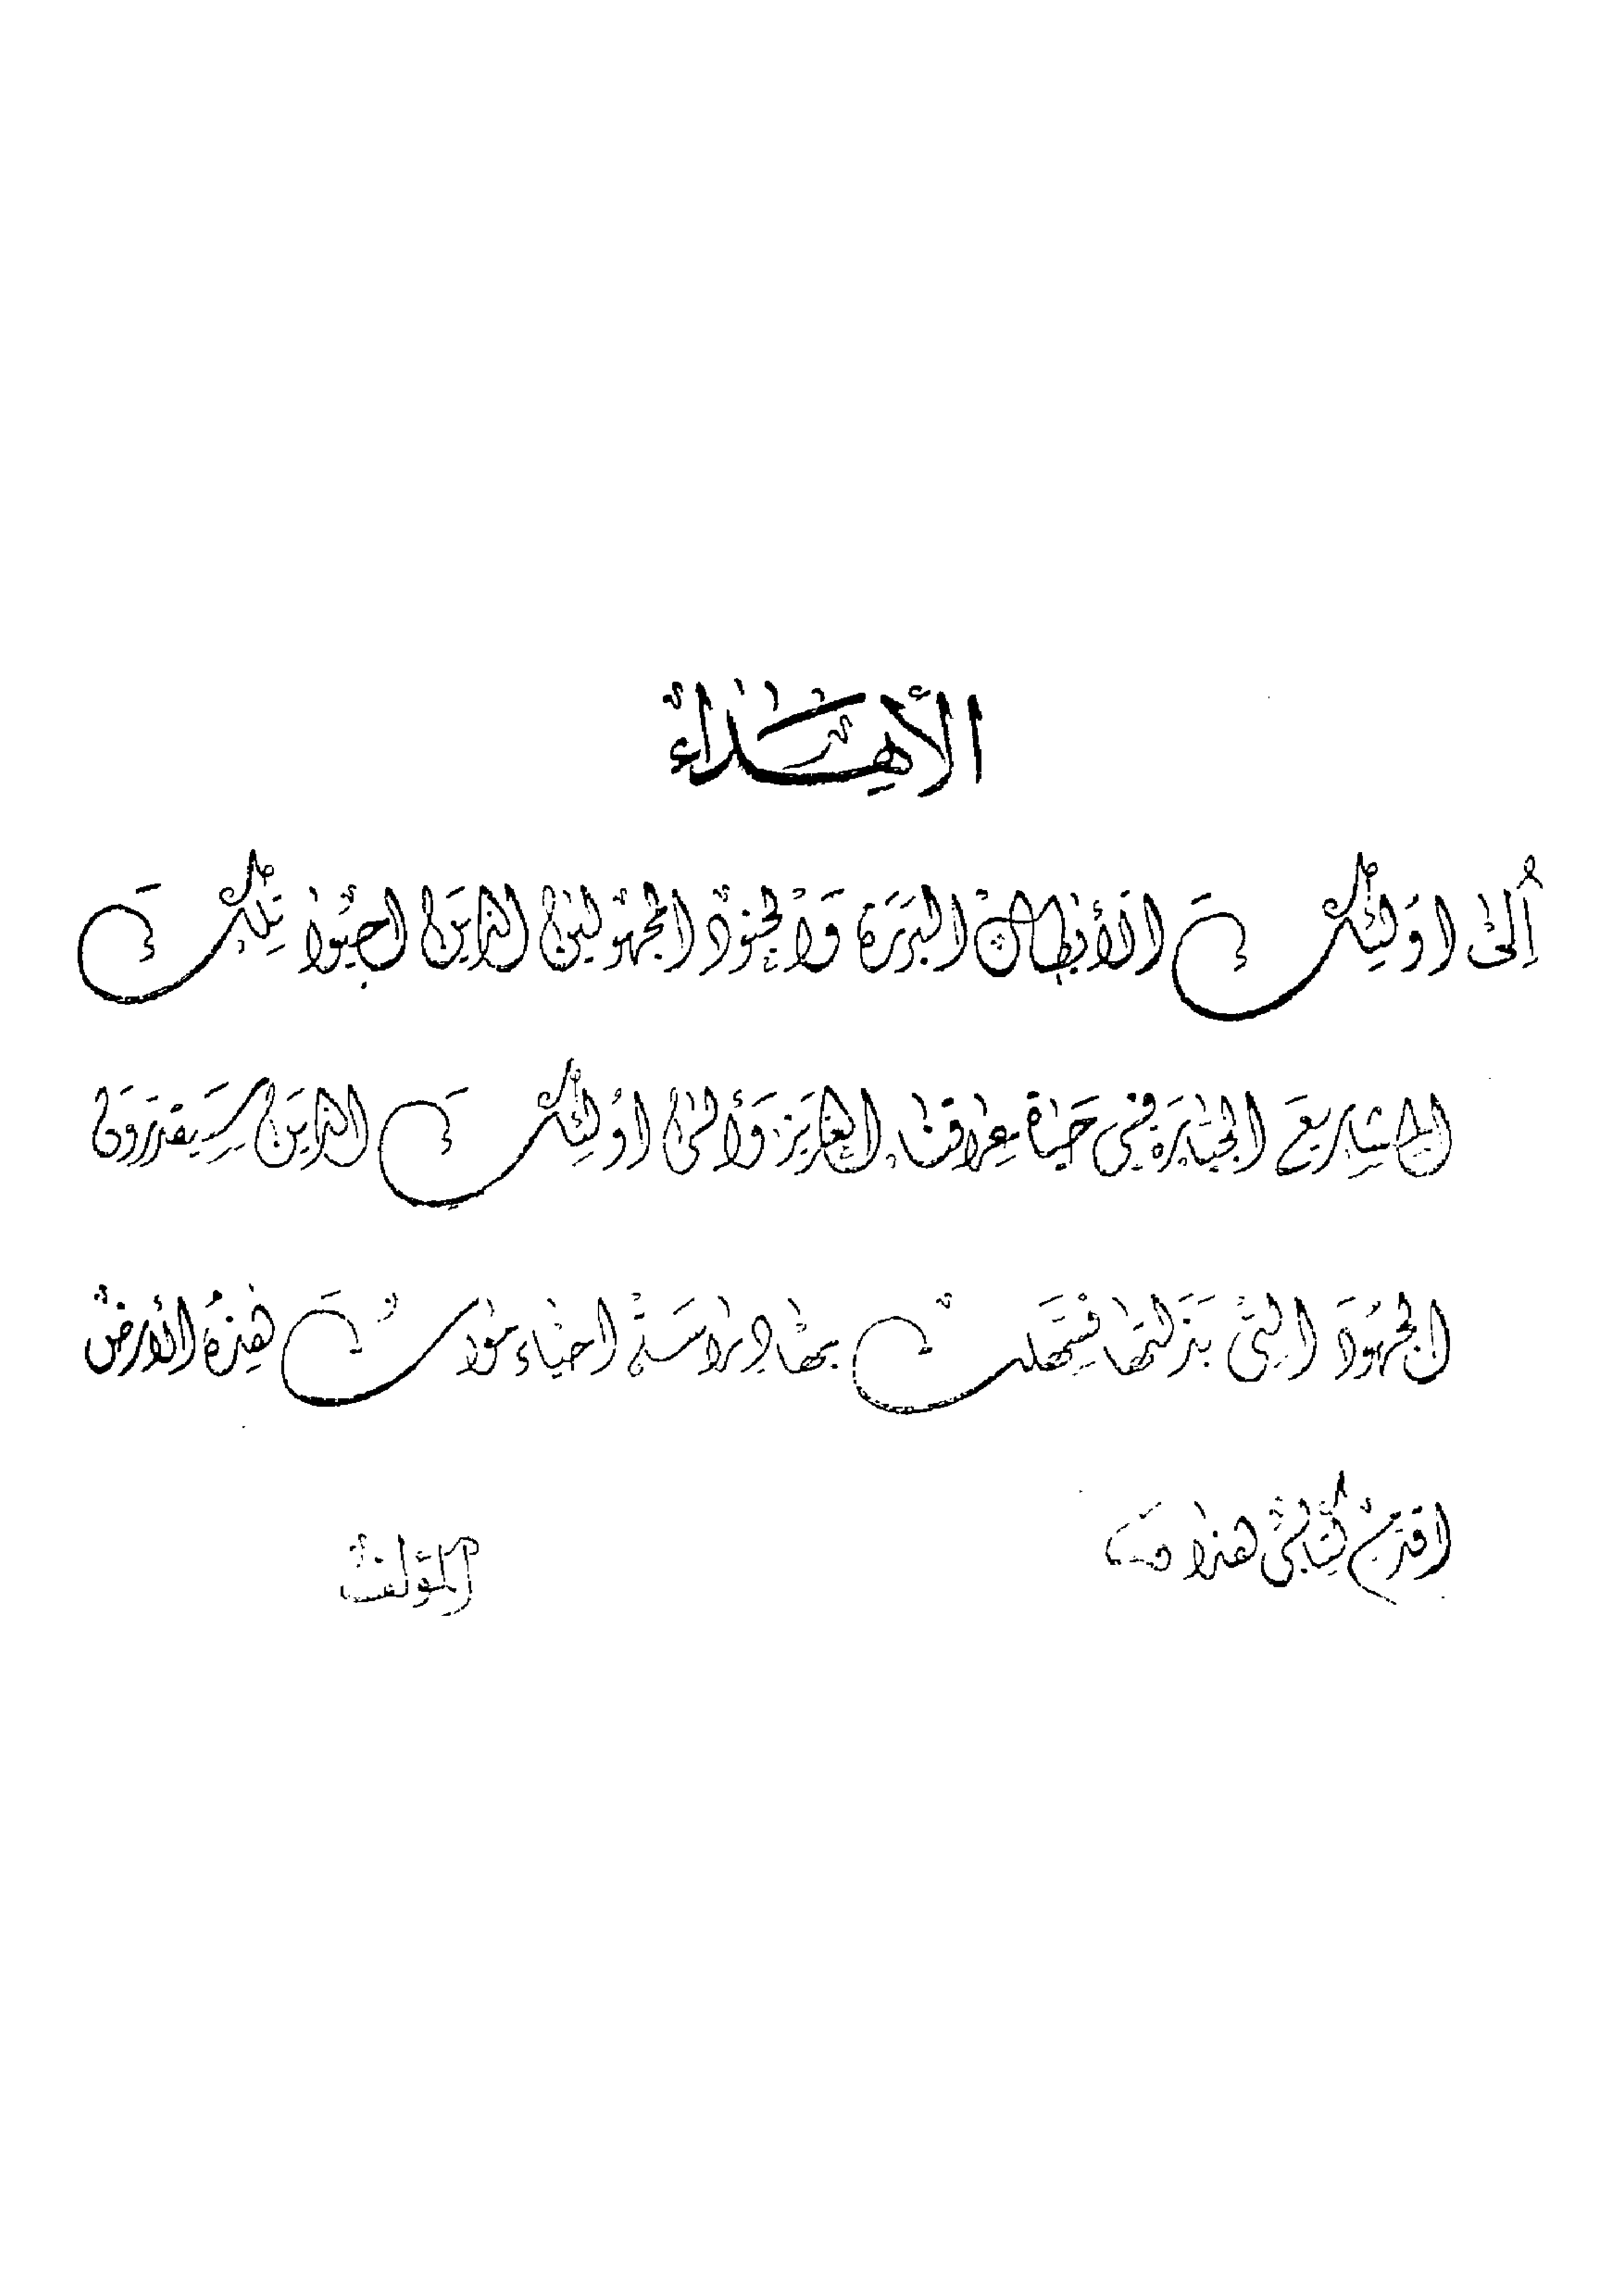 الأهداء
ألى اولئك الأبطال البررة والجنود المجهولين الذين احيوا تلك
المشاريع الجبارة في حياة عراقنا العزيز وألى اولئك الذين سيقدرون
الجهود التي بذلتها فسهلت بها دراسة احياء موات هذه الأرض
اقدم كتابي هذا
المؤلف